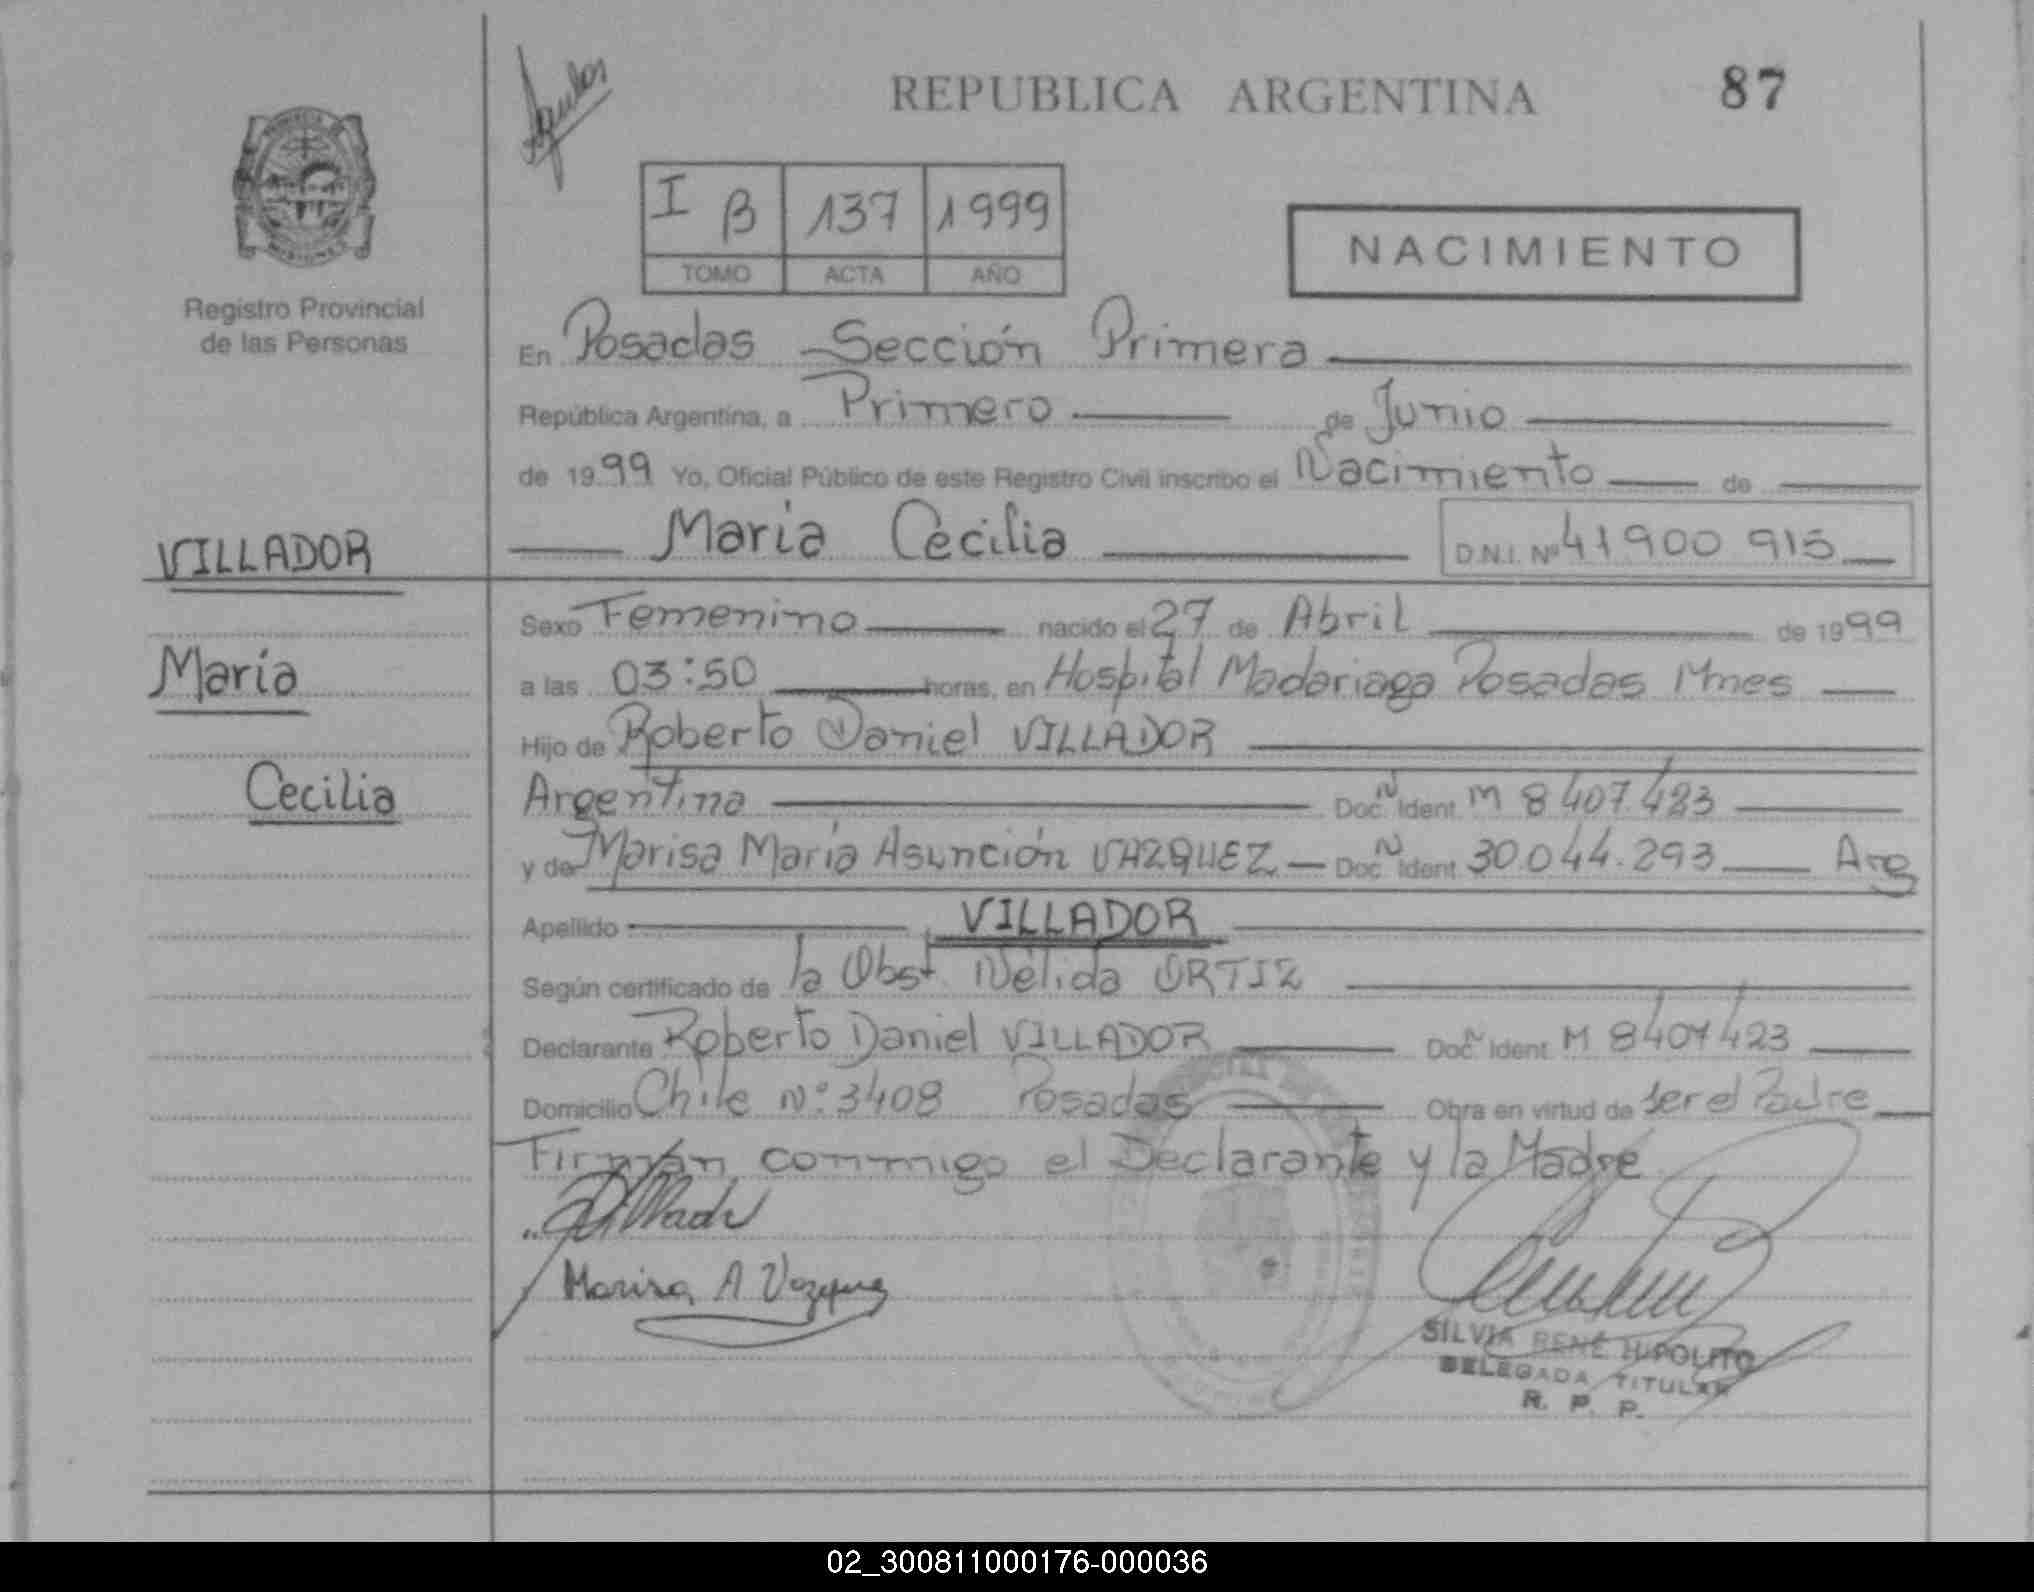 Aguilar
REPUBLICA ARGENTINA 87
I B 137 1999
TOMO ACTA AÑO
NACIMIENTO
Registro Provincial
de las Personas
En Posadas Sección Primera
República Argentina, a Primero de Junio
de 1999 Yo, Oficial Público de este Registro Civil inscribo el Nacimiento de
María Cecilia D.N.I. Nº 41900 915
VILLADOR
María
Cecilia
Sexo Femenino nacido el 27 de Abril de 1999
a las 03:50 horas, en Hospital Madariaga Posadas Mnes
Hijo de Roberto Daniel VILLADOR
Argentina Doc. Ident. M 8407423
y de Marisa María Asunción VAZQUEZ Doc. Ident. 30.044.293 Arg
Apellido VILLADOR
Según certificado de la Obst. Nélida ORTIZ
Declarante Roberto Daniel VILLADOR Doc. Ident. M 8407423
Domicilio Chile Nº 3408 Posadas Obra en virtud de ser el Padre
Firman conmigo el Declarante y la Madre
Marisa A Vazquez
SILVIA RENÉ HIPOLITO
DELEGADA TITULAR
R. P. P.
02_300811000176-000036